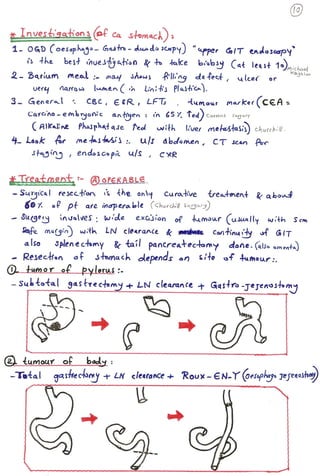 10
* Investigations (of Ca stomach):
1- OGD (oesophago- Gastro- duodenoscopy) "upper GIT endoscopy"
is the best investigation & to take biobsy (at least 10) michael
2- Barium meal :- may shows filling defect, ulcer or
very narrow lumen (in linitis plastica).
3- General : CBC, ESR, LFTs, tumour marker (CEA =
Carcino-embryonic antigen : in 65% ↑ed) Current surgery
(Alkaline Phosphatase ↑ed with liver metastasis) churchill
4- Look for metastasis :. U/S abdomen, CT scan for
staging, endoscopic U/S, CXR
* Treatment :- (A) OPERABLE
- Surgical resection is the only curative treatment & about
60% of pt are inoperable (Churchill Surgery)
- Surgery involves : wide excision of tumour (usually with 5cm
safe margin) with LN clearance & continuity of GIT
also splenectomy & tail pancreatectomy done. (also omenta)
- Resection of stomach depends on site of tumour :.
① tumor of pylorus :.
- subtotal gastrectomy + LN clearance + Gastro-jejenostomy
② tumour of body :
- Total gastrectomy + LN clearance + Roux-EN-Y (oesophago jejenostomy)